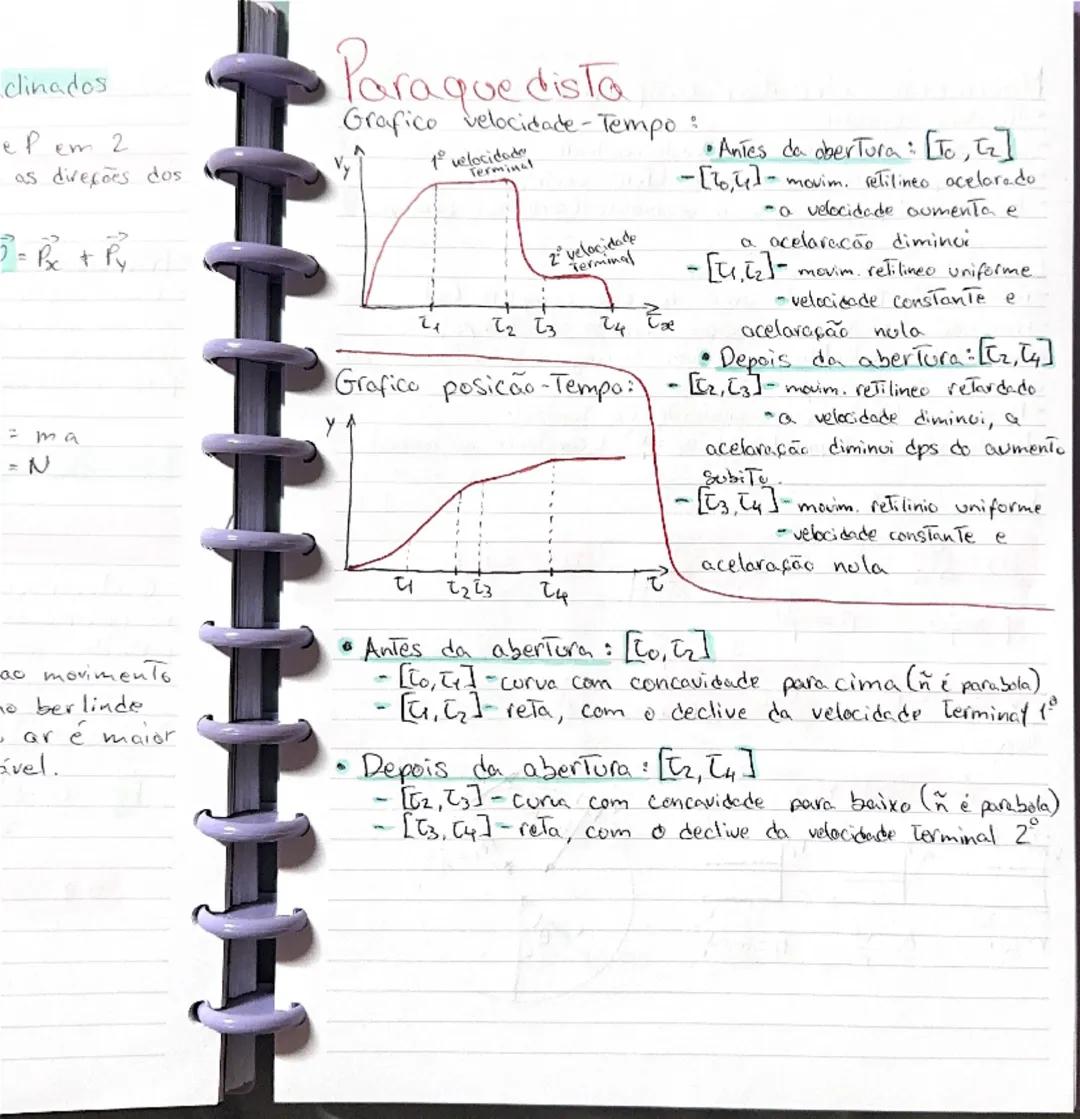 clinados
e P em 2
as direções dos
= Px + Py
= ma
= N
ao movimento
no berlinde
ar é maior
ável.
Paraquedista
Grafico velocidade-Tempo:
Vy
1º velocidade
Terminal
2º velocidade
Terminal
t1 t2 t3 t4 tx
• Antes da abertura: [t0, t2]
- [t0, t1] - movim. retilineo acelarado
- a velocidade aumenta e
a acelaracão diminui
- [t1, t2] - movim. retilineo uniforme
- velocidade constante e
acelaração nula
• Depois da abertura: [t2, t4]
- [t2, t3] - movim. retilineo retardado
- a velocidade diminui, a
acelaração diminui dps do aumento
subito.
- [t3, t4] - movim. retilinio uniforme
- velocidade constante e
acelaração nula
Grafico posicão-Tempo:
y
t1 t2 t3 t4 t
• Antes da abertura: [t0, t2]
- [t0, t1] - curva com concavidade para cima (ñ é parabola)
- [t1, t2] - reta, com o declive da velocidade terminal 1º
• Depois da abertura: [t2, t4]
- [t2, t3] - curva com concavidade para baixo (ñ é parabola)
- [t3, t4] - reta, com o declive da velocidade Terminal 2º